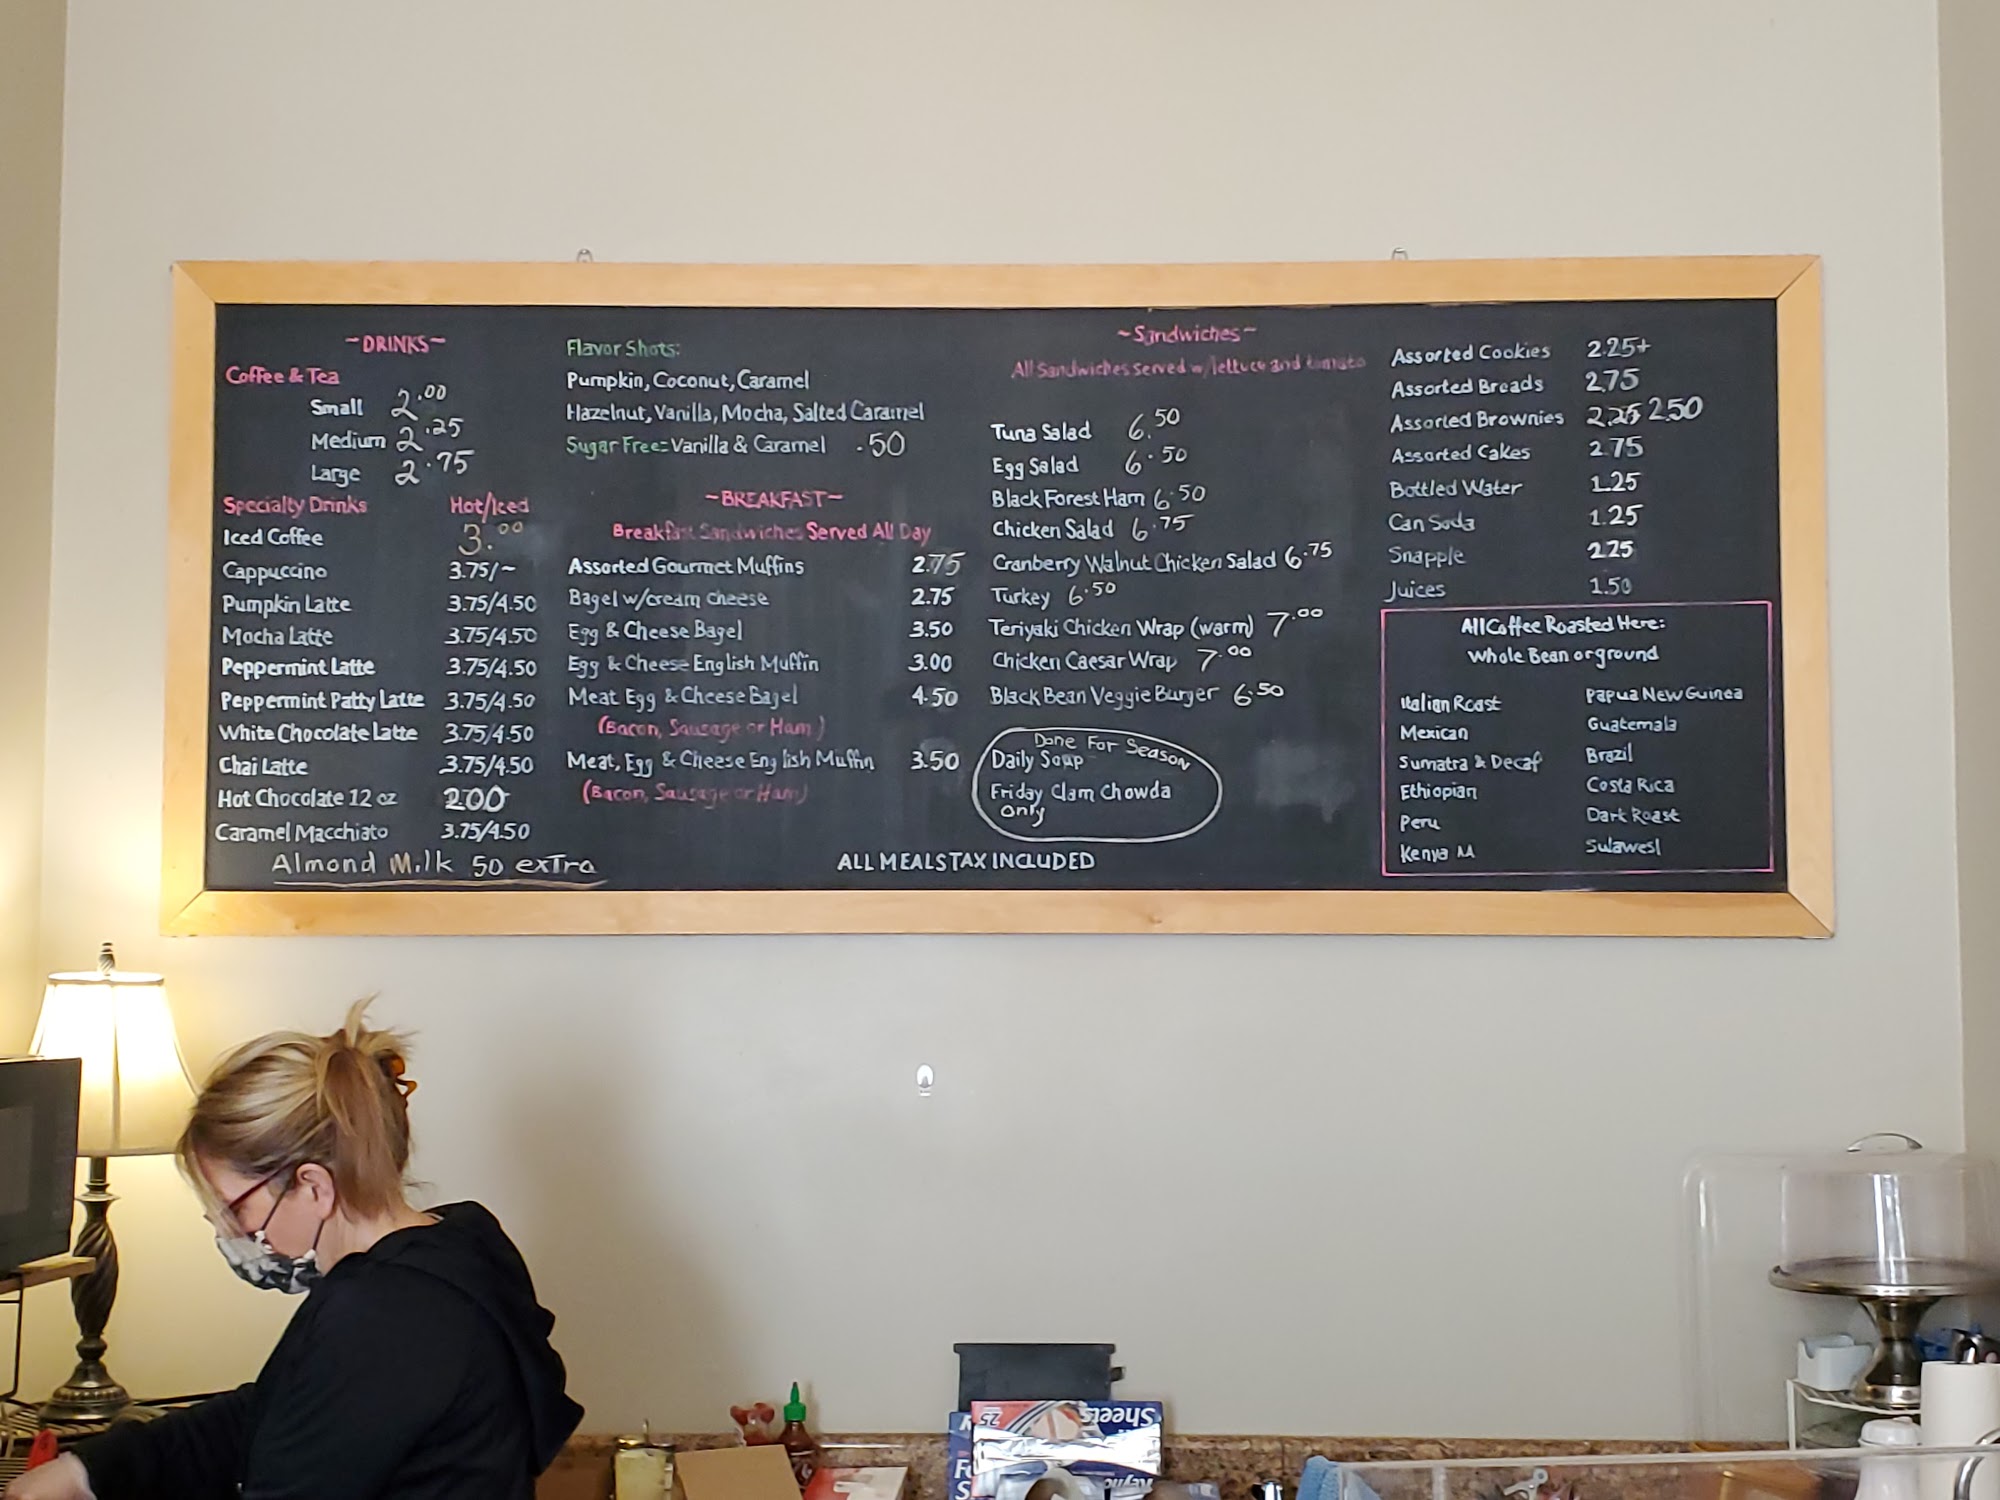 ~DRINKS~
Coffee & Tea
Small 2.00
Medium 2.25
Large 2.75
Specialty Drinks Hot/Iced
Iced Coffee 3.00
Cappuccino 3.75/~
Pumpkin Latte 3.75/4.50
Mocha Latte 3.75/4.50
Peppermint Latte 3.75/4.50
Peppermint Patty Latte 3.75/4.50
White Chocolate Latte 3.75/4.50
Chai Latte 3.75/4.50
Hot Chocolate 12 oz 2.00
Caramel Macchiato 3.75/4.50
Almond Milk 50 extra
Flavor Shots:
Pumpkin, Coconut, Caramel
Hazelnut, Vanilla, Mocha, Salted Caramel
Sugar Free: Vanilla & Caramel .50
~BREAKFAST~
Breakfast Sandwiches Served All Day
Assorted Gourmet Muffins 2.75
Bagel w/cream cheese 2.75
Egg & Cheese Bagel 3.50
Egg & Cheese English Muffin 3.00
Meat Egg & Cheese Bagel 4.50
(Bacon, Sausage or Ham)
Meat, Egg & Cheese English Muffin 3.50
(Bacon, Sausage or Ham)
ALL MEALS TAX INCLUDED
~Sandwiches~
All Sandwiches served w/lettuce and tomato
Tuna Salad 6.50
Egg Salad 6.50
Black Forest Ham 6.50
Chicken Salad 6.75
Cranberry Walnut Chicken Salad 6.75
Turkey 6.50
Teriyaki Chicken Wrap (warm) 7.00
Chicken Caesar Wrap 7.00
Black Bean Veggie Burger 6.50
Done For Season
Daily Soup
Friday Clam Chowda
Only
Assorted Cookies 2.25+
Assorted Breads 2.75
Assorted Brownies 2.25 2.50
Assorted Cakes 2.75
Bottled Water 1.25
Can Soda 1.25
Snapple 2.25
Juices 1.50
All Coffee Roasted Here:
Whole Bean or ground
Italian Roast
Mexican
Sumatra & Decaf
Ethiopian
Peru
Kenya AA
Papua New Guinea
Guatemala
Brazil
Costa Rica
Dark Roast
Sulawesi
25
Sheets